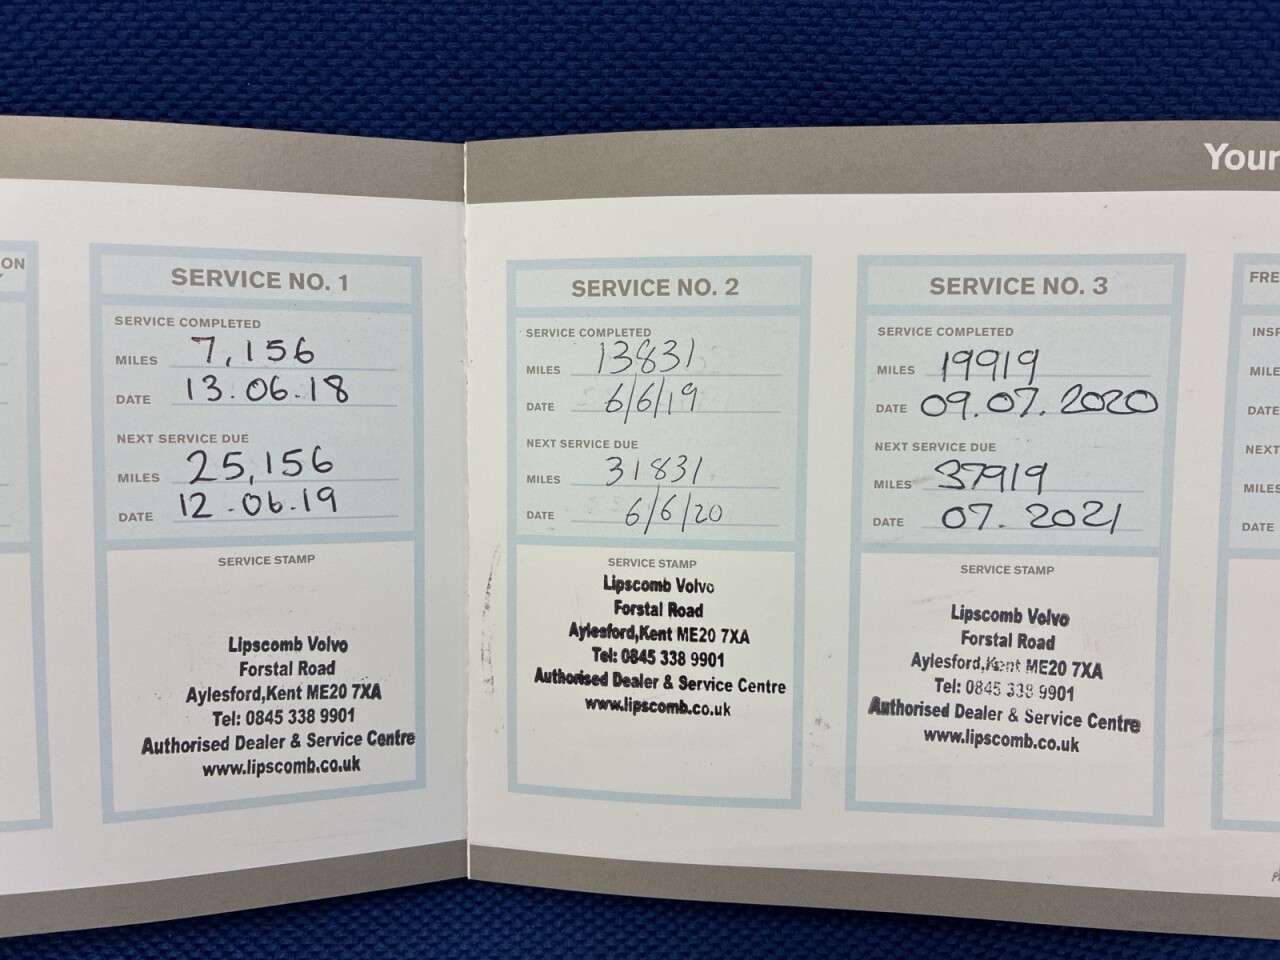 Your
ON
SERVICE NO. 1
SERVICE COMPLETED
MILES 7,156
DATE 13.06.18
NEXT SERVICE DUE
MILES 25,156
DATE 12.06.19
SERVICE STAMP
Lipscomb Volvo
Forstal Road
Aylesford,Kent ME20 7XA
Tel: 0845 338 9901
Authorised Dealer & Service Centre
www.lipscomb.co.uk
SERVICE NO. 2
SERVICE COMPLETED
MILES 13831
DATE 6/6/19
NEXT SERVICE DUE
MILES 31831
DATE 6/6/20
SERVICE STAMP
Lipscomb Volvo
Forstal Road
Aylesford,Kent ME20 7XA
Tel: 0845 338 9901
Authorised Dealer & Service Centre
www.lipscomb.co.uk
SERVICE NO. 3
SERVICE COMPLETED
MILES 19919
DATE 09.07.2020
NEXT SERVICE DUE
MILES 37919
DATE 07.2021
SERVICE STAMP
Lipscomb Volvo
Forstal Road
Aylesford,Kent ME20 7XA
Tel: 0845 338 9901
Authorised Dealer & Service Centre
www.lipscomb.co.uk
FRE
INSP
MILE
DATE
NEXT
MILES
DATE